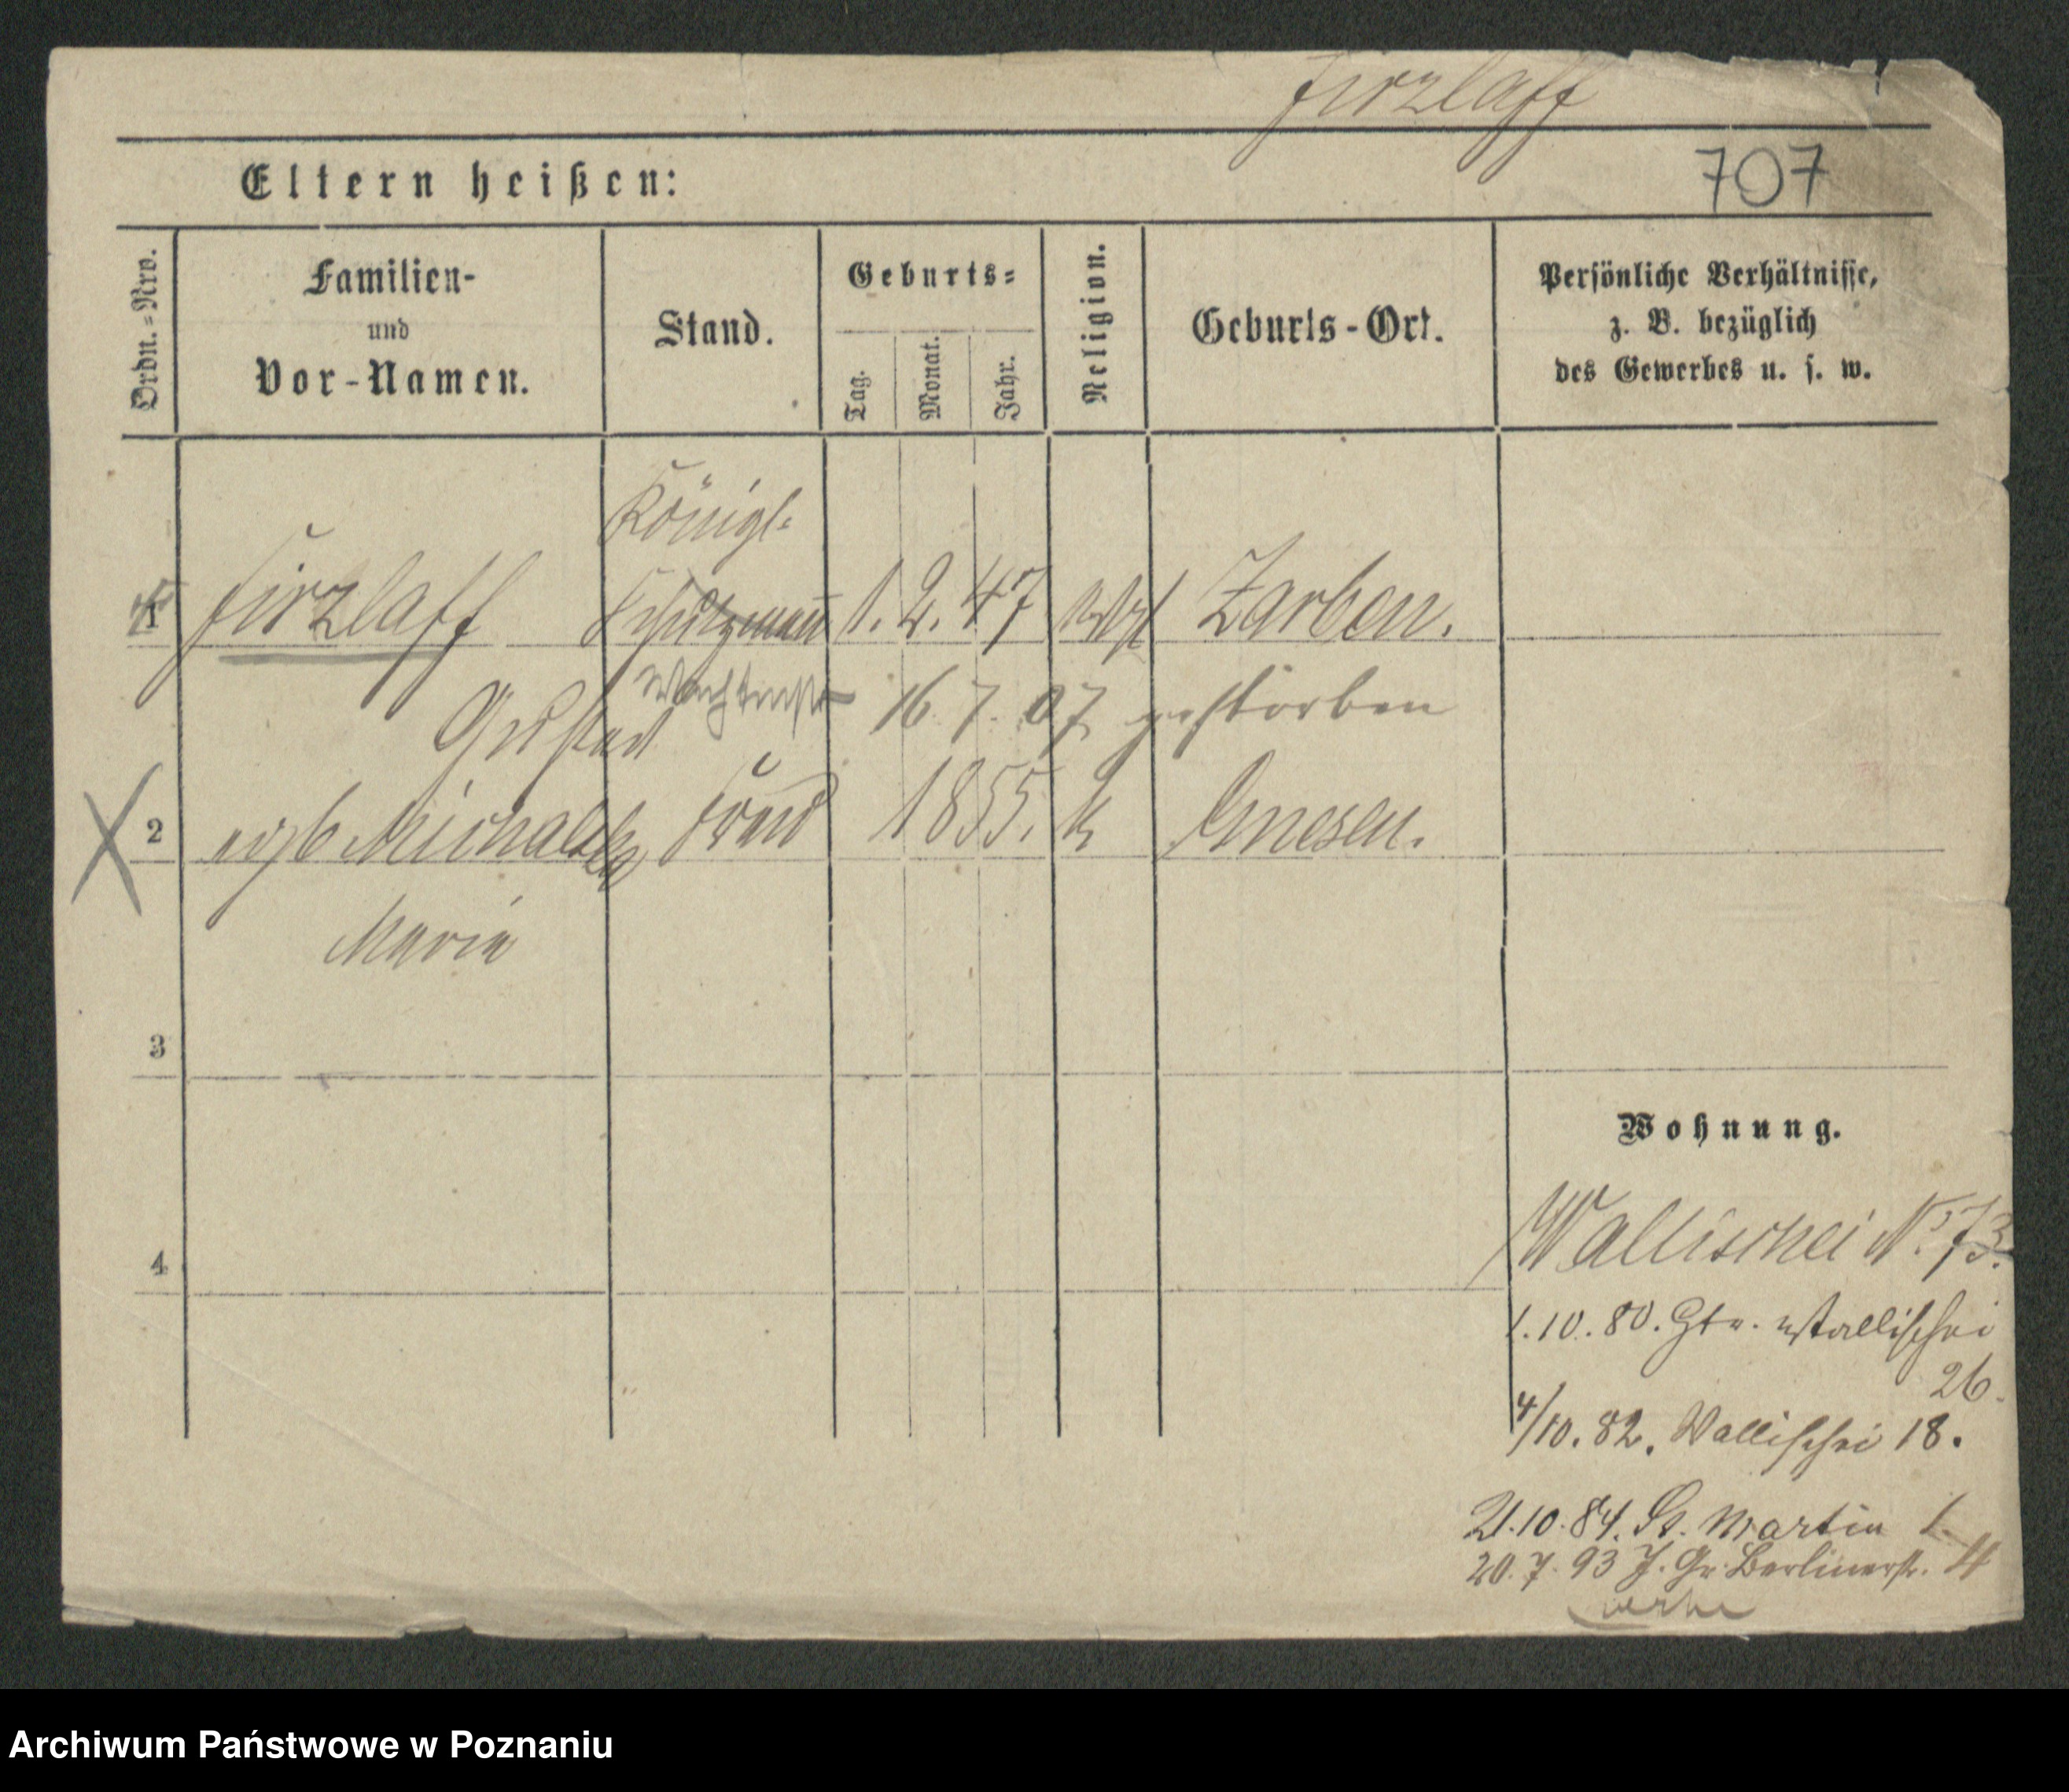 Firzlaff
707
Eltern heißen:
Ordn.-Nro.
Familien-
und
Vor-Namen.
Stand.
Geburts-
Tag.
Monat.
Jahr.
Religion.
Geburts-Ort.
Persönliche Verhältnisse,
z. B. bezüglich
des Gewerbes u. s. w.
Königl.
1 Firzlaff Schutzmann 1. 2. 47 Zarben.
Gustav 16. 7. 07 gestorben
2 Michalska Frau 1855. k Gnesen.
Maria
3
Wohnung.
4
Wallischei No 73.
1.10.80. Wallischei
26.
4/10.82. Wallischei 18.
21.10.84. St. Martin 1
20.7.93 Gr. Berlinerstr. 4
Archiwum Państwowe w Poznaniu